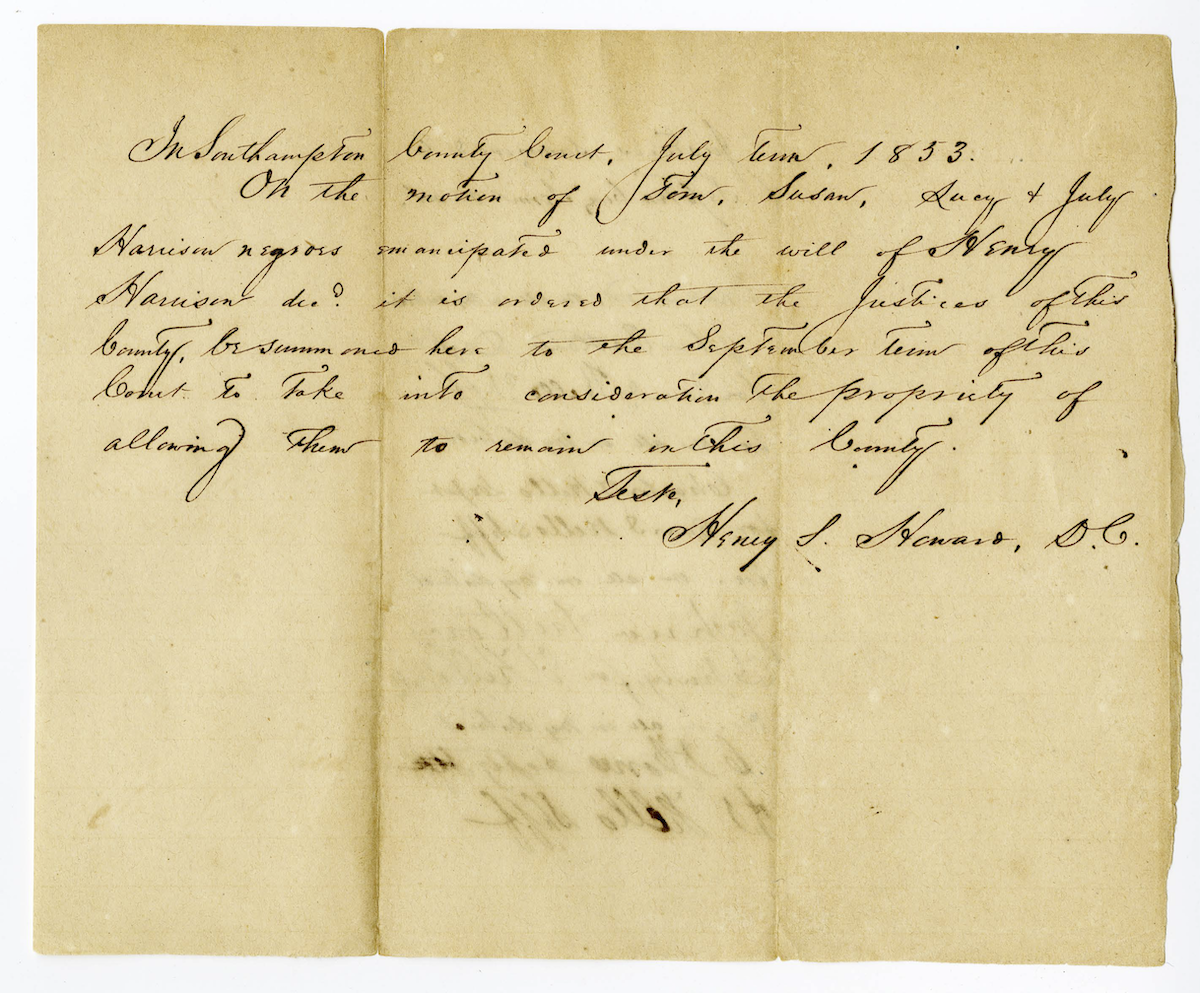 In Southampton County Court, July term, 1853.
On the motion of Tom, Susan, Lucy & July
Harrison negroes emancipated under the will of Henry
Harrison decd. it is ordered that the Justices of this
County, be summoned here to the September term of this
Court to take into consideration the propriety of
allowing them to remain in this County.
Teste,
Henry S. Howard, D.C.